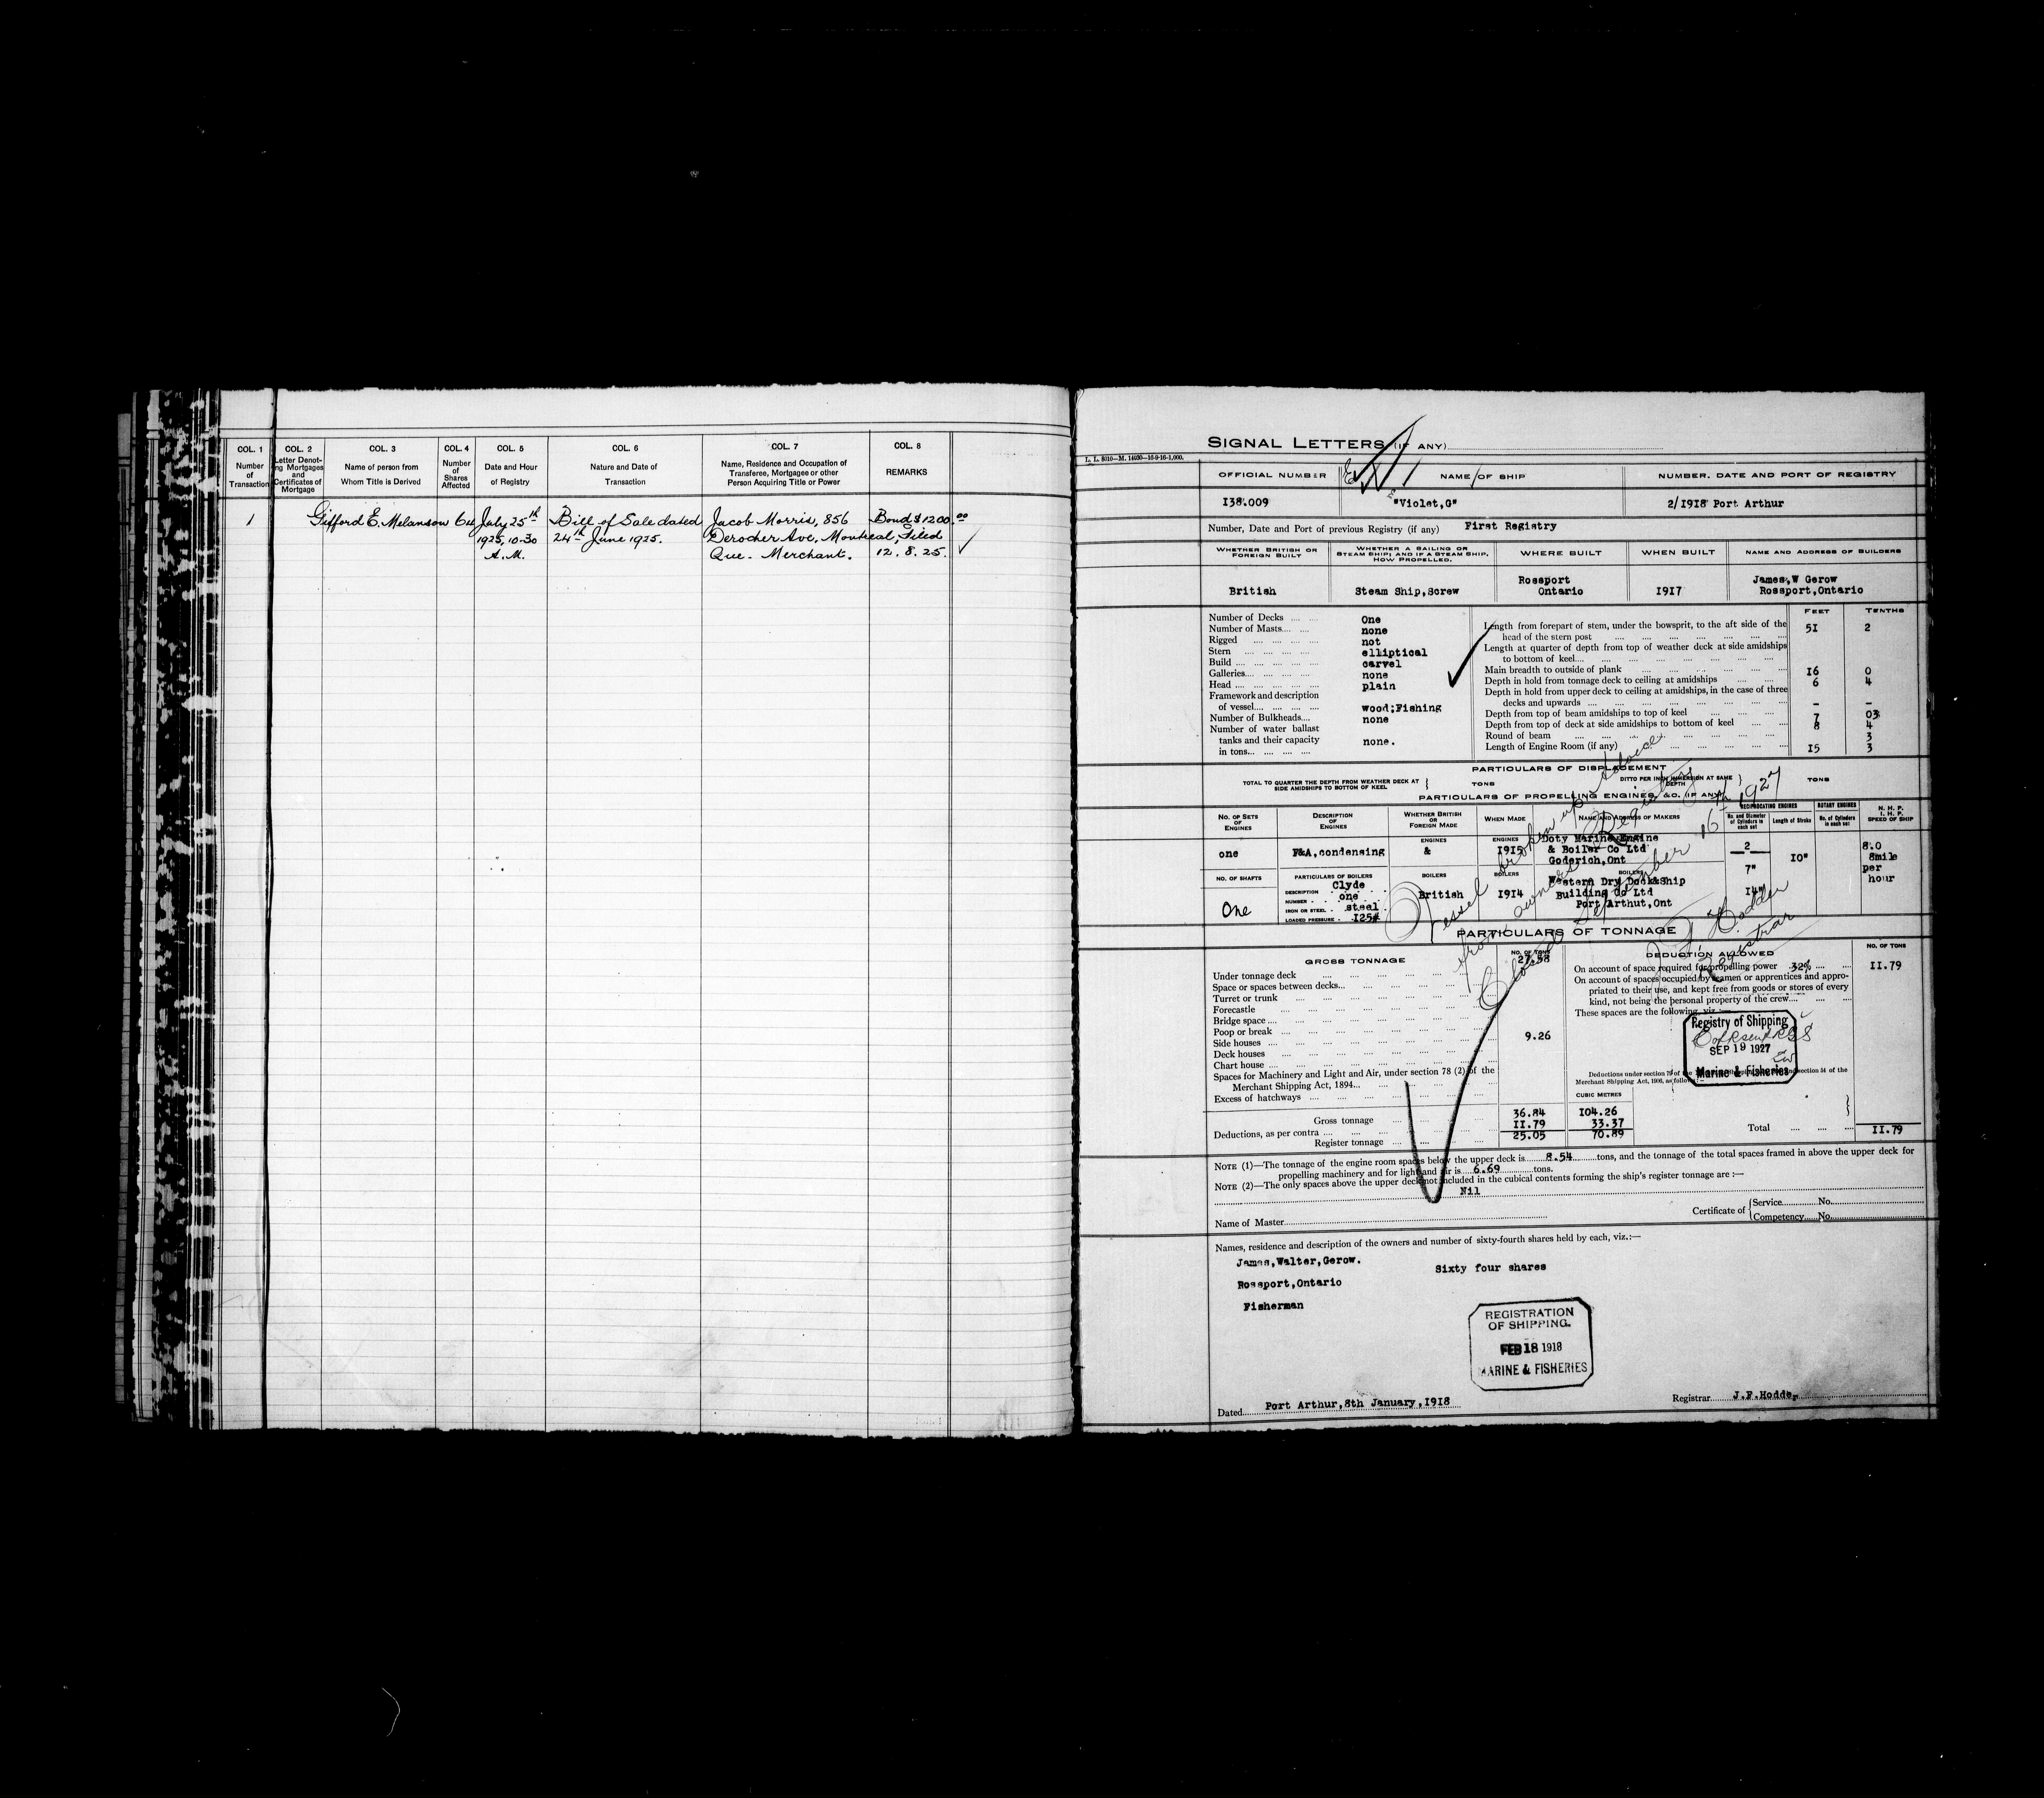 COL. 1
Number
of
Transaction
COL. 2
Letter Denot-
ing Mortgages
and
Certificates of
Mortgage
COL. 3
Name of person from
Whom Title is Derived
COL. 4
Number
of
Shares
Affected
COL. 5
Date and Hour
of Registry
COL. 6
Nature and Date of
Transaction
COL. 7
Name, Residence and Occupation of
Transferee, Mortgagee or other
Person Acquiring Title or Power
COL. 8
REMARKS
1 Gifford E. Melanson 64 July 25th Bill of Sale dated Jacob Morris, 856 Bond $1200.00
1925, 10-30 24th June 1925. Derocher Ave, Montreal, Filed
A.M. Que. Merchant. 12.8.25.
SIGNAL LETTERS (IF ANY)
L. L. 8010—M. 14930—16-9-16-1,000.
OFFICIAL NUMBER NAME OF SHIP NUMBER, DATE AND PORT OF REGISTRY
138.009 "Violet,G" 2/1918 Port Arthur
Number, Date and Port of previous Registry (if any) First Registry
WHETHER BRITISH OR
FOREIGN BUILT
WHETHER A SAILING OR
STEAM SHIP; AND IF A STEAM SHIP,
HOW PROPELLED.
WHERE BUILT
WHEN BUILT
NAME AND ADDRESS OF BUILDERS
British
Steam Ship,Screw
Rossport
Ontario
1917
James,W Gerow
Rossport,Ontario
FEET TENTHS
Number of Decks One
Number of Masts none
Rigged not
Stern elliptical
Build carvel
Galleries none
Head plain
Framework and description
of vessel wood;Fishing
Number of Bulkheads none
Number of water ballast
tanks and their capacity
in tons none.
Length from forepart of stem, under the bowsprit, to the aft side of the
head of the stern post 51 2
Length at quarter of depth from top of weather deck at side amidships
to bottom of keel
Main breadth to outside of plank 16 0
Depth in hold from tonnage deck to ceiling at amidships 6 4
Depth in hold from upper deck to ceiling at amidships, in the case of three
decks and upwards - -
Depth from top of beam amidships to top of keel 7 03
Depth from top of deck at side amidships to bottom of keel 8 4
Round of beam 3
Length of Engine Room (if any) 15 3
PARTICULARS OF DISPLACEMENT
TOTAL TO QUARTER THE DEPTH FROM WEATHER DECK AT
SIDE AMIDSHIPS TO BOTTOM OF KEEL
TONS
DITTO PER INCH IMMERSION AT SAME
DEPTH
TONS
PARTICULARS OF PROPELLING ENGINES, &C. (IF ANY)
NO. OF SETS
OF
ENGINES
DESCRIPTION
OF
ENGINES
WHETHER BRITISH
OR
FOREIGN MADE
WHEN MADE
NAME AND ADDRESS OF MAKERS
RECIPROCATING ENGINES
No. and Diameter
of Cylinders in
each set
Length of Stroke
ROTARY ENGINES
No. of Cylinders
in each set
N. H. P.
I. H. P.
SPEED OF SHIP
ENGINES ENGINES
one
F&A,condensing
&
1915
Doty Marine Engine
& Boiler Co Ltd
Goderich,Ont
2
7"
14"
10"
8.0
8mile
per
hour
NO. OF SHAFTS
One
PARTICULARS OF BOILERS
Clyde
DESCRIPTION
NUMBER one
IRON OR STEEL steel
LOADED PRESSURE 125#
BOILERS
British
BOILERS
1914
BOILERS
Western Dry Dock&Ship
Building Co Ltd
Port Arthut,Ont
Vessel broken up. Advice
from owners.
Closed Registry
September 16th 1927
J F Hodder
Registrar
PARTICULARS OF TONNAGE
GROSS TONNAGE NO. OF TONS
Under tonnage deck 27.58
Space or spaces between decks
Turret or trunk
Forecastle
Bridge space
Poop or break
Side houses 9.26
Deck houses
Chart house
Spaces for Machinery and Light and Air, under section 78 (2) of the
Merchant Shipping Act, 1894
Excess of hatchways
CUBIC METRES
Gross tonnage 36.84 104.26
Deductions, as per contra 11.79 33.37
Register tonnage 25.05 70.89
DEDUCTION ALLOWED NO. OF TONS
On account of space required for propelling power 32% 11.79
On account of spaces occupied by seamen or apprentices and appro-
priated to their use, and kept free from goods or stores of every
kind, not being the personal property of the crew
These spaces are the following, viz.:—
Registry of Shipping
SEP 19 1927
Marine & Fisheries
Deductions under section 79 of the
section 54 of the
Merchant Shipping Act, 1906, as follows:—
Total 11.79
NOTE (1)—The tonnage of the engine room spaces below the upper deck is 8.54 tons, and the tonnage of the total spaces framed in above the upper deck for
propelling machinery and for light and air is 6.69 tons.
NOTE (2)—The only spaces above the upper deck not included in the cubical contents forming the ship's register tonnage are :—
Nil
Name of Master
Certificate of
Service No.
Competency No.
Names, residence and description of the owners and number of sixty-fourth shares held by each, viz.:—
James,Walter,Gerow.
Sixty four shares
Rossport,Ontario
Fisherman
REGISTRATION
OF SHIPPING.
FEB 18 1918
MARINE & FISHERIES
Dated Port Arthur,8th January,1918
Registrar J.F.Hodder